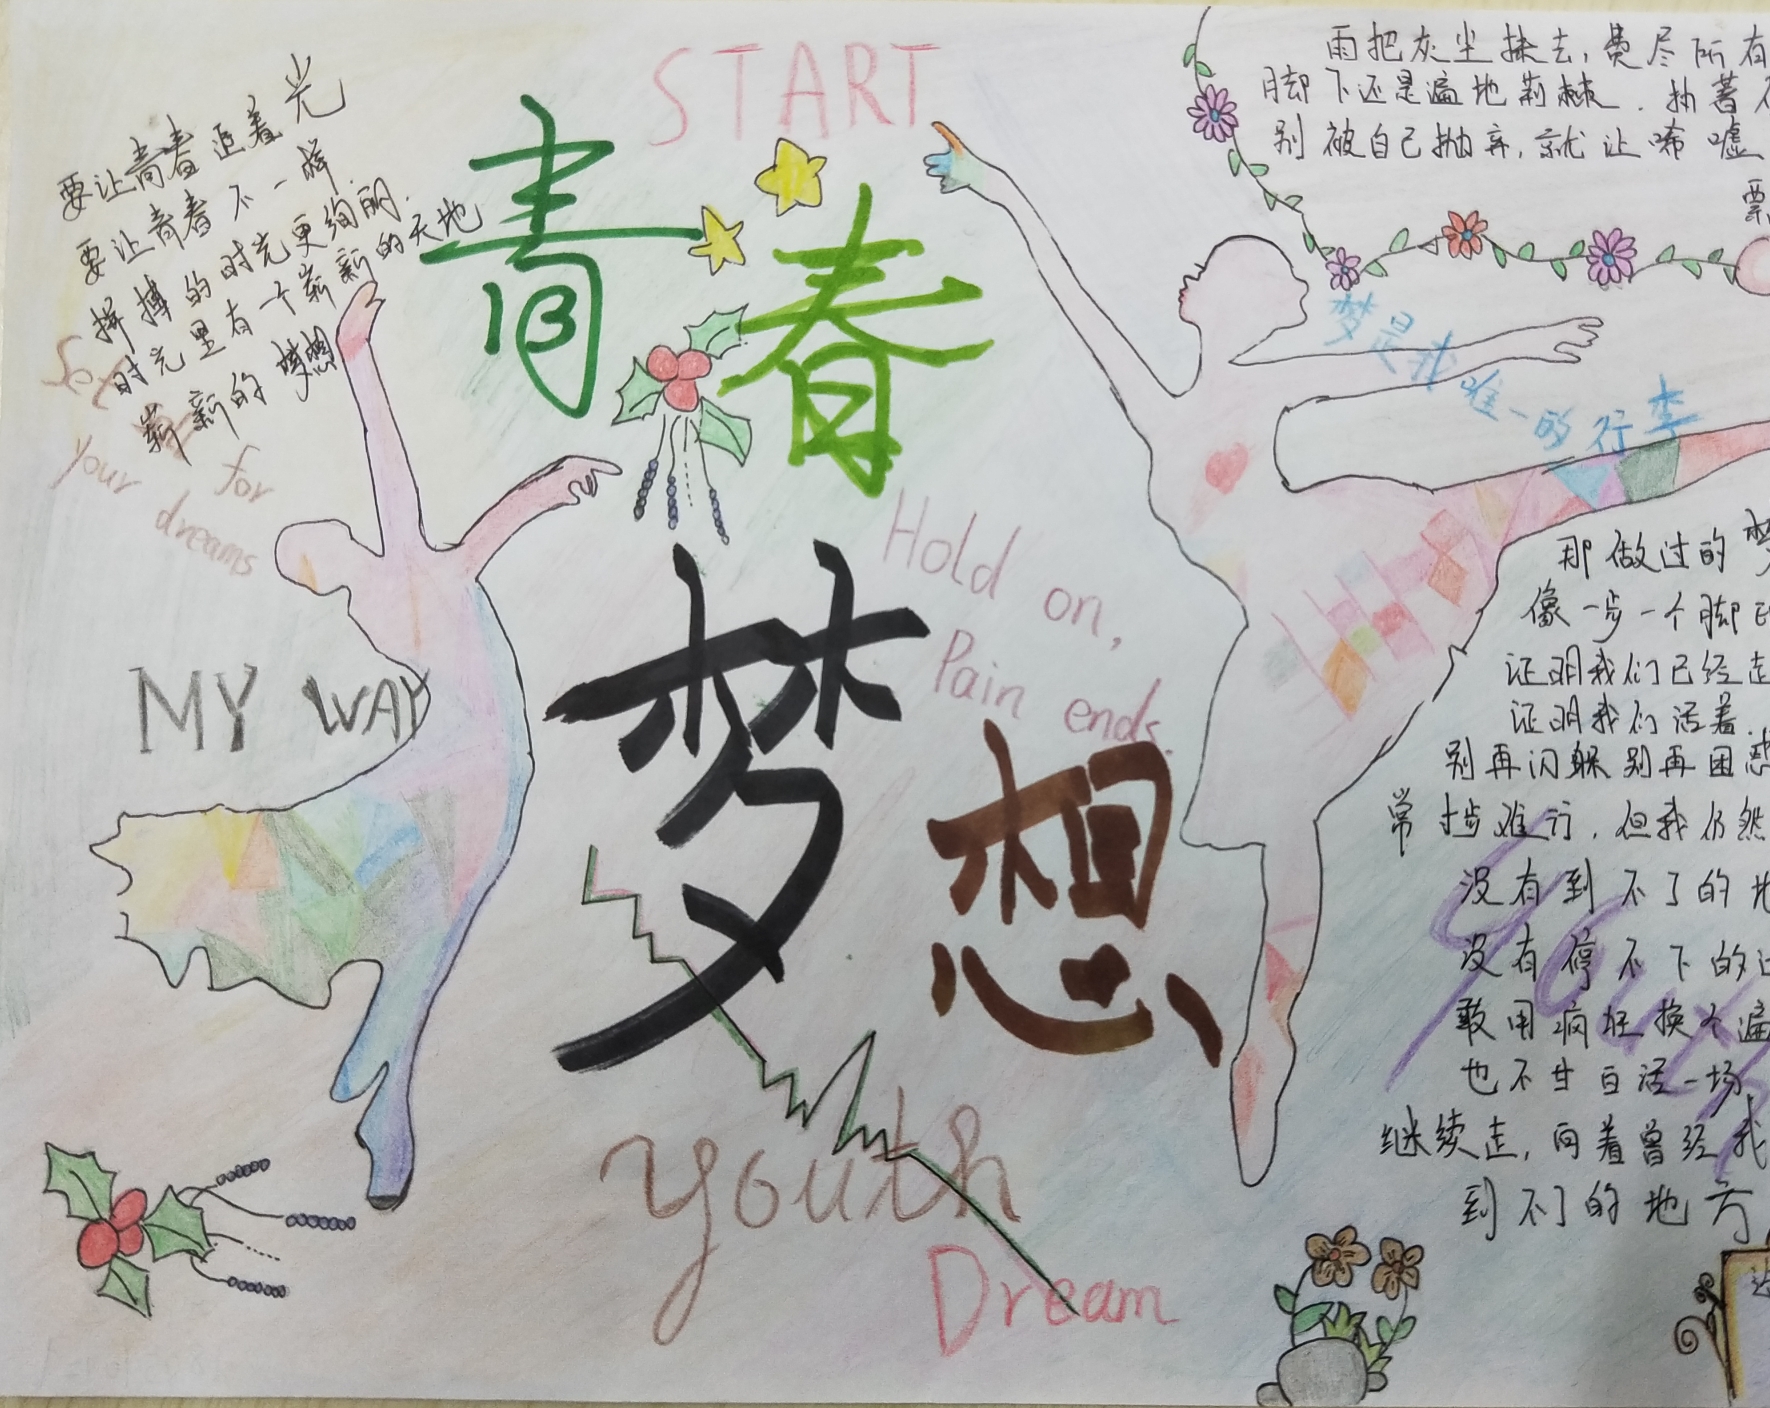 START
要让青春追着光
要让青春不一样.
拼搏的时光更绚丽.
时光里有一个崭新的天地
崭新的梦想
Set
for
your dreams
青春
梦想
Hold on,
Pain ends.
MY WAY
youth
Dream
雨把灰尘抹去,费尽所有
脚下还是遍地荆棘.执著
别被自己抛弃,就让唏嘘
梦是我唯一的行李
那做过的梦
像一步一个脚印
证明我们已经走
证明我们活着.
别再闪躲别再困惑
常寸步难行,但我仍然
没有到不了的地
没有停不下的
敢用疯狂换个遍
也不甘白活一场
继续走,向着曾经我
到不了的地方
Youth